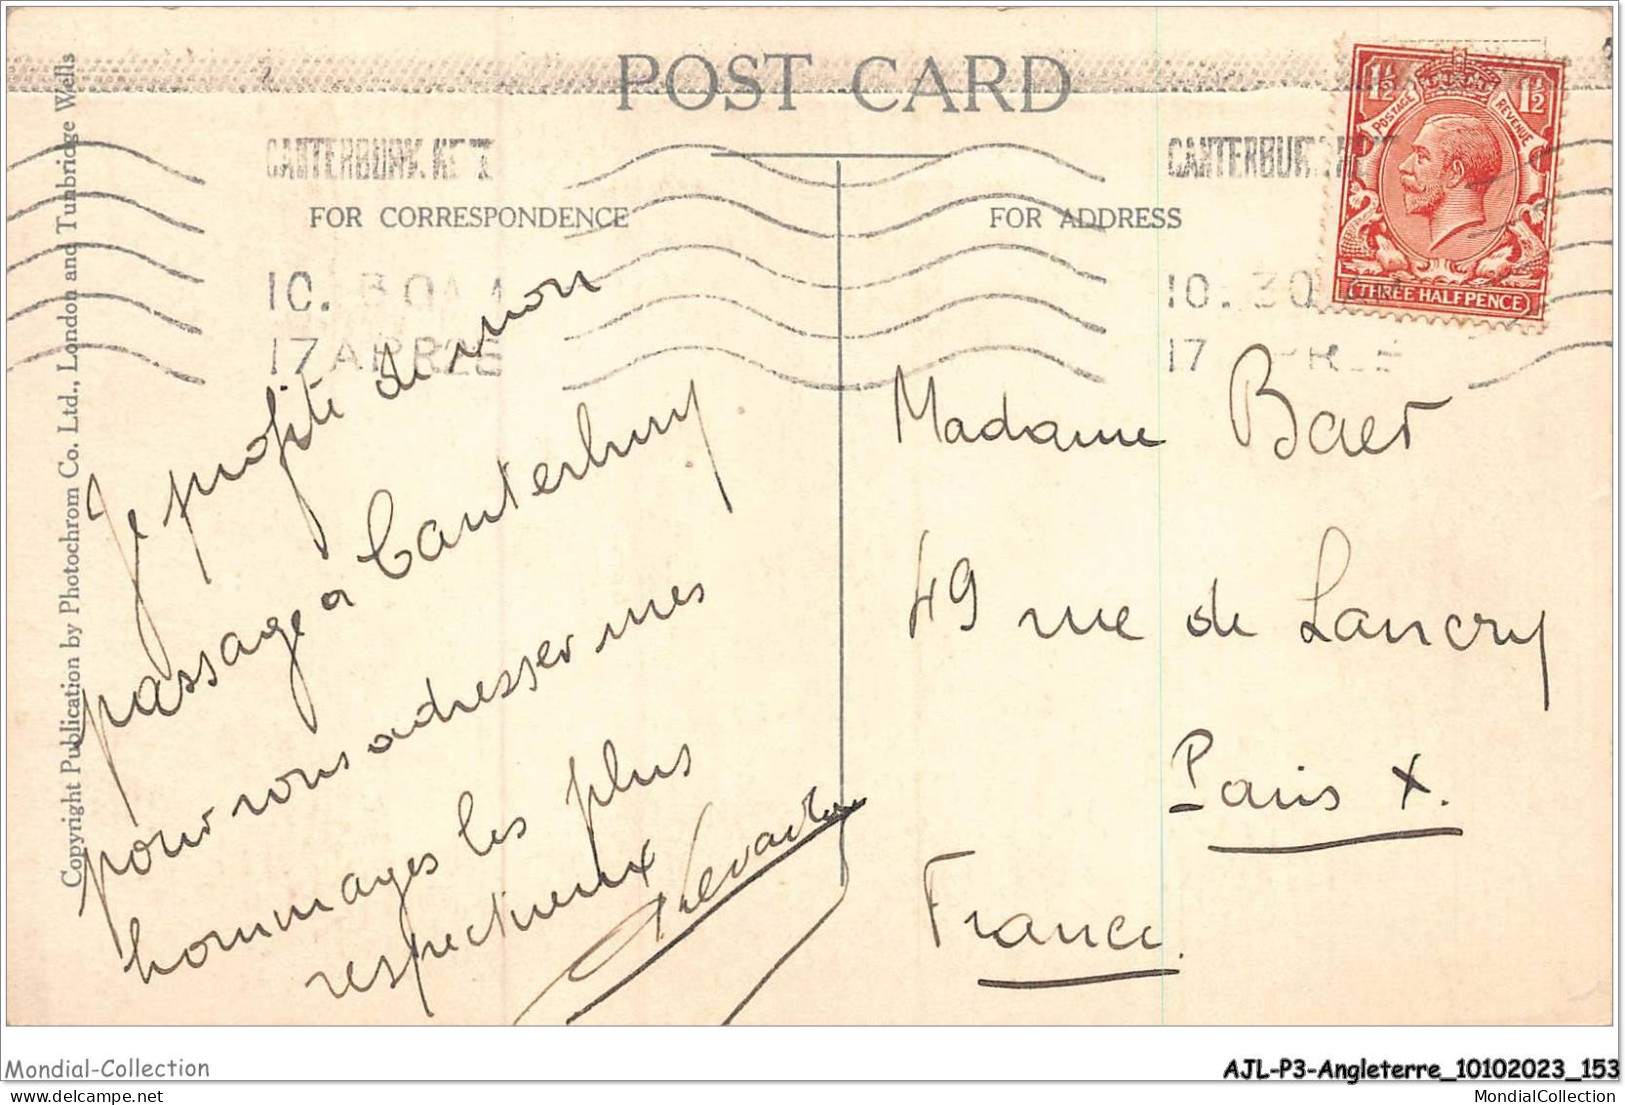 POST CARD
CANTERBURY KENT
CANTERBURY
FOR CORRESPONDENCE
FOR ADDRESS
10. 30 AM
17 APR 25
10. 30
17
1½ 1½
POSTAGE REVENUE
THREE HALFPENCE
Copyright Publication by Photochrom Co. Ltd., London and Tunbridge Wells
Je profite de mon
passage a Canterbury
pour vous adresser mes
hommages les plus
respectueux
Madame Baer
49 rue de Lancry
Paris X.
France.
Mondial-Collection
AJL-P3-Angleterre_10102023_153
MondialCollection